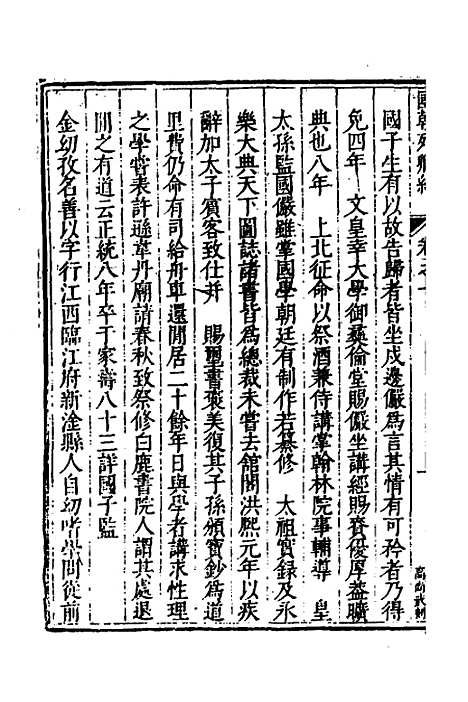 國朝列卿紀 卷之十
國子生有以故告歸者皆坐戍邊儼爲言其情有可矜者乃得
免四年 文皇幸大學御彝倫堂賜儼坐講經賜賚優厚葢曠
典也八年 上北征命以祭酒兼侍講掌翰林院事輔導 皇
太孫監國儼雖掌國學朝廷有制作若纂修 太祖實録及永
樂大典天下圖誌諸書皆爲總裁未嘗去舘閣洪熙元年以疾
辭加太子賓客致仕并 賜璽書褒美復其子孫頒寳鈔爲道
里費仍命有司給舟車還閒居二十餘年日與學者講求性理
之學嘗表許遜革丹廟請春秋致祭修白鹿書院人謂其處退
閒之有道云正統八年卒于家壽八十三詳國子監
金幼孜名善以字行江西臨江府新淦縣人自幼嗜學問從前